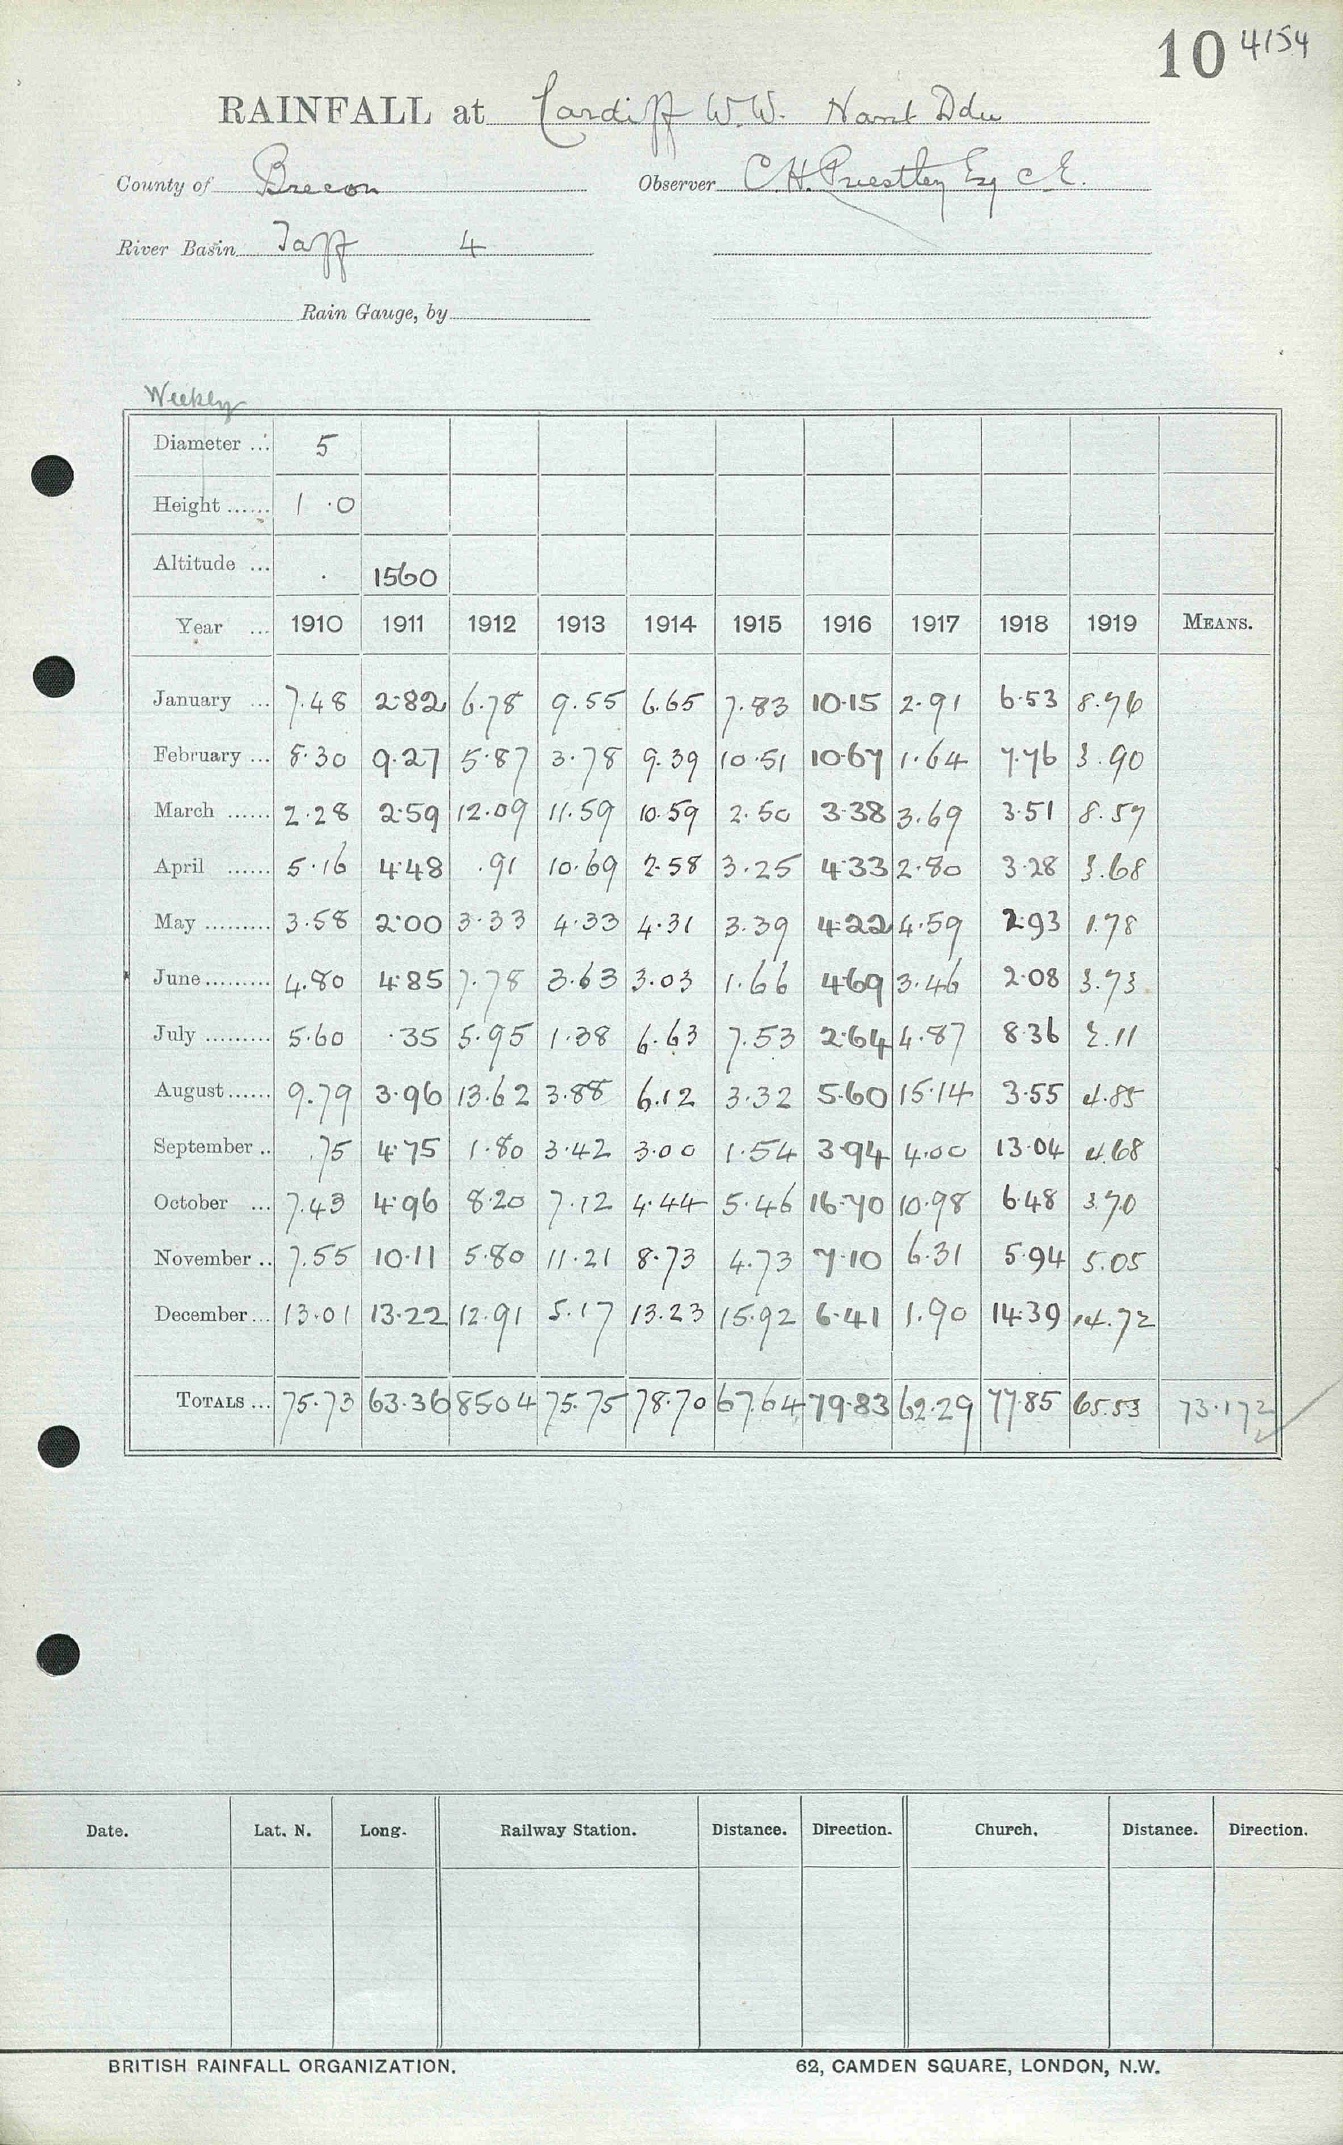 10 4154
RAINFALL at Cardiff W.W. Nant Ddu
County of Brecon Observer C.H. Priestley Esq C.E.
River Basin Taff 4
Rain Gauge, by
Weekly
Diameter ... 5
Height ...... 1 .0
Altitude ... . 1560
Year ... 1910 1911 1912 1913 1914 1915 1916 1917 1918 1919 MEANS.
January ... 7.48 2.82 6.78 9.55 6.65 7.83 10.15 2.91 6.53 8.76
February ... 8.30 9.27 5.87 3.78 9.39 10.51 10.67 1.64 7.76 3.90
March ...... 2.28 2.59 12.09 11.59 10.59 2.50 3.38 3.69 3.51 8.57
April ...... 5.16 4.48 .91 10.69 2.58 3.25 4.33 2.80 3.28 3.68
May ......... 3.58 2.00 3.33 4.33 4.31 3.39 4.22 4.59 2.93 1.78
June ......... 4.80 4.85 7.78 3.63 3.03 1.66 4.69 3.46 2.08 3.73
July ......... 5.60 .35 5.95 1.38 6.63 7.53 2.64 4.87 8.36 2.11
August ...... 9.79 3.96 13.62 3.88 6.12 3.32 5.60 15.14 3.55 4.85
September .. .75 4.75 1.80 3.42 3.00 1.54 3.94 4.00 13.04 4.68
October ... 7.43 4.96 8.20 7.12 4.44 5.46 16.70 10.98 6.48 3.70
November .. 7.55 10.11 5.80 11.21 8.73 4.73 7.10 6.31 5.94 5.05
December ... 13.01 13.22 12.91 5.17 13.23 15.92 6.41 1.90 14.39 14.72
TOTALS ... 75.73 63.36 85.04 75.75 78.70 67.64 79.83 62.29 77.85 65.53 73.172
Date. Lat. N. Long. Railway Station. Distance. Direction. Church. Distance. Direction.
BRITISH RAINFALL ORGANIZATION. 62, CAMDEN SQUARE, LONDON, N.W.